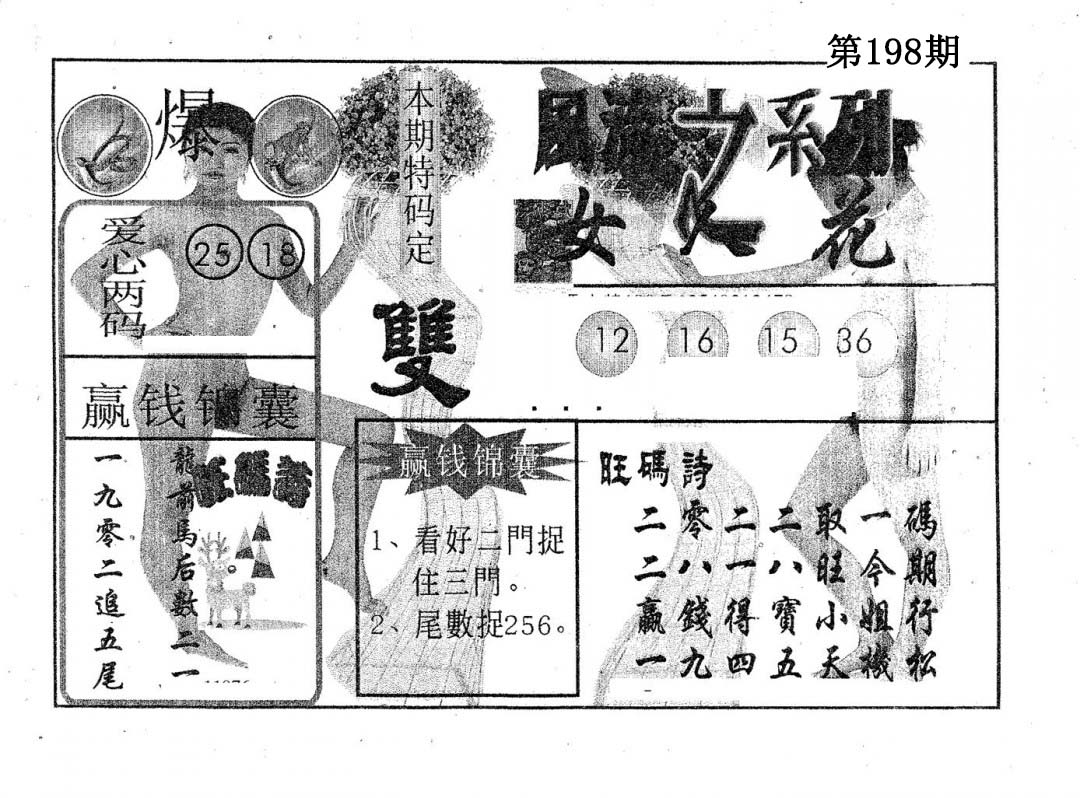 第198期
爆
本期特码定
雙
系列
女人花
爱心两码
25 18
12 16 15 36
赢钱锦囊
旺碼詩
龍前馬后數二一
一九零二追五尾
赢钱锦囊
1、看好二門捉
住三門。
2、尾數捉256。
旺碼詩
二零二二取一碼
二八一八旺今期
贏錢得寶小姐行
一九四五天機松